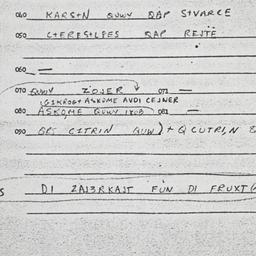 060 KARS+N QUWY QAP S+VARCE
050 C+ERES+LPES QAP REJTE
060 —
070 QUWY ZOJER 071 —
GIKROG+ ASKOME AVDI CEJNER
080 ASKOME QUWY 081 —
090 CITRIN QUW) + QCUTRI,N
DI ZAJ3RKAJT FUN DI FRUXT